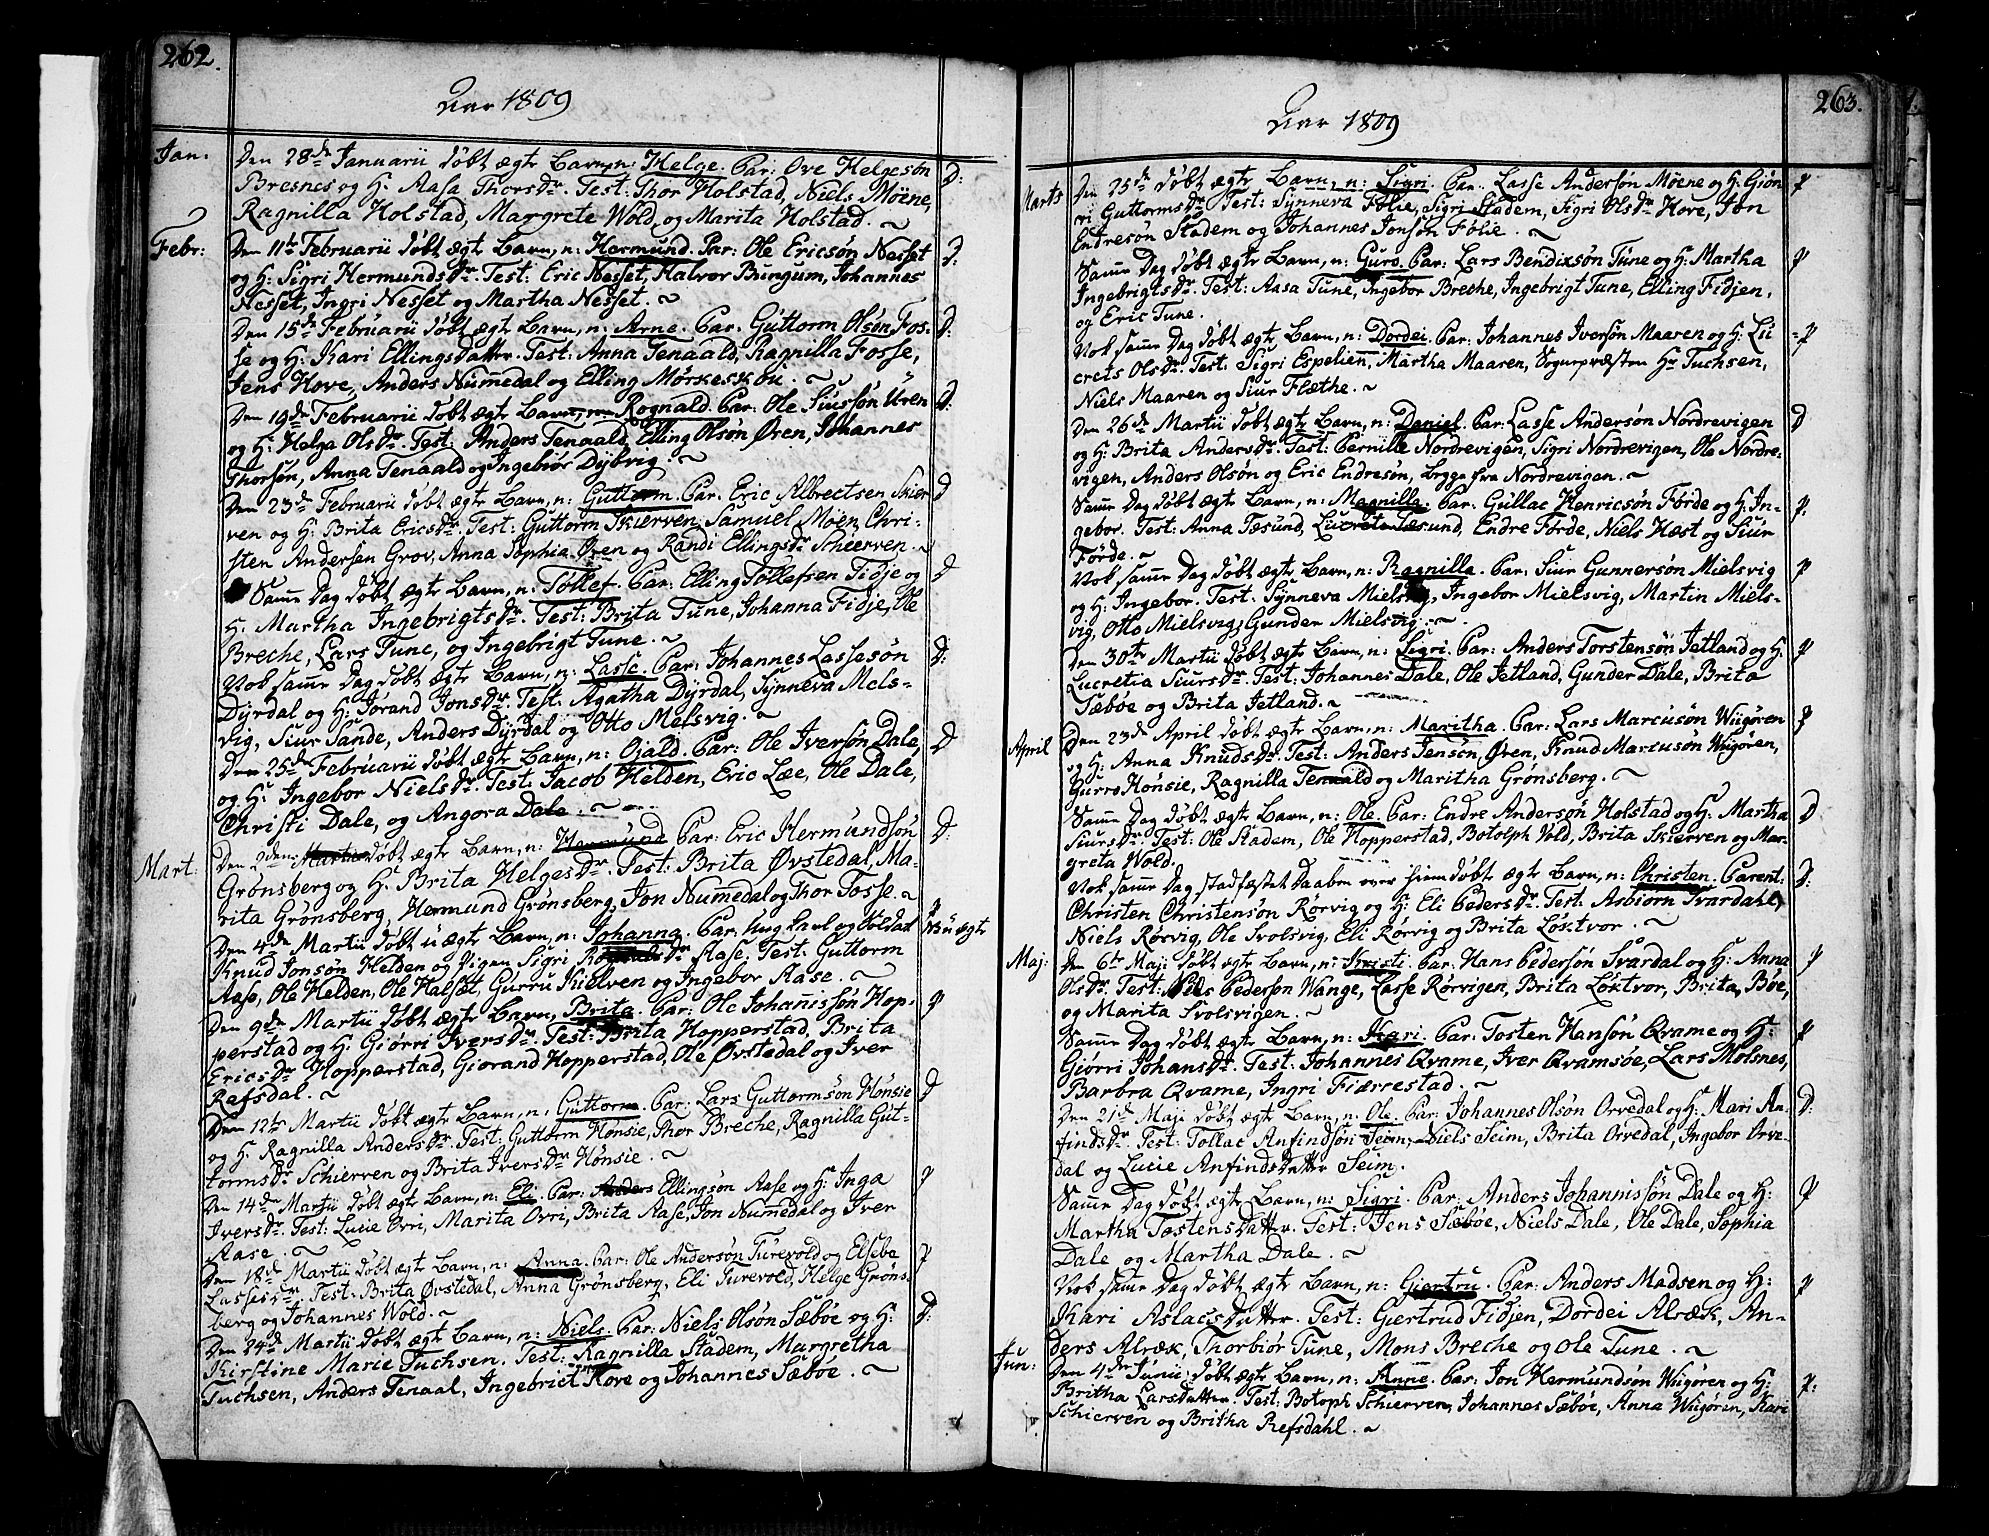 262.
Aar 1809
Jan:
Den 28de Januarii døbt ægte Barn, n: Helge. Par: Ove Helgesøn D:
Bresnes og H: Aasa Thorsdr. Test: Thor Holstad, Niels Möene,
Ragnilla Holstad, Margrete Wold, og Marita Holstad. ~
Febr: Den 11te Februarii døbt ægte Barn, n: Hermund. Par: Ole Ericsøn Nesset D:
og H: Sigri Hermundsdr. Test: Eric Nesset, Halvor Bungum, Johannes
Nesset, Ingri Nesset og Martha Nesset. ~
Den 15de Februarii døbt ægte Barn, n: Arne. Par: Guttorm Olsøn Fos- D:
se og H: Kari Ellingsdatter. Test: Anna Tenaald, Ragnilla Fosse,
Jens Hove, Anders Nummedal og Elling Mørkeskou. ~
Den 19de Februarii døbt ægte Barn, n: Rognald. Par: Ole Siursøn Uren D:
og H: Helga Olsdr. Test: Anders Tenaald, Elling Olsøn Øren, Johannes
Thorsøn, Anna Tenaald og Ingebiør Dybvig. ~
Den 23de Februarii døbt ægte Barn, n: Guttorm. Par: Eric Albrectsen Skier D
ven og H: Brita Ericsdr. Test: Guttorm Skierven, Samuel Möen, Chri-
sten Andersen Grov, Anna Sophia Øren og Randi Ellingsdr Schierven. ~
Samme Dag døbt ægte Barn, n: Tollef. Par: Elling Tollefsen Fidje og D
H: Martha Ingebrigtsdr. Test: Brita Tune, Johanna Fidje, Ole
Breche, Lars Tune, og Ingebrigt Tune. ~
Nok samme Dag døbt ægte Barn, n: Lasse. Par: Johannes Lassesøn D:
Dyrdal og H: Jørand Jonsdr. Test: Agatha Dyrdal, Synneva Mels-
vig, Siur Sande, Anders Dyrdal og Otto Melsvig. ~
Den 25de Februarii døbt ægte Barn, n: Ojald. Par: Ole Iversøn Dale, D
og H: Ingebor Nielsdr. Test: Jacob Helden, Eric Læe, Ole Dale,
Christi Dale, og Angora Dale. ~
Mart: Den 2den Martii døbt ægte Barn, n: Hermund Par: Eric Hermundsøn D:
Grønsberg og H: Brita Helgesdr. Test: Brita Øvstedal, Ma-
rita Grønsberg, Hermund Grønsberg, Jon Nummedal og Thor Fosse. ~
Den 4de Martii døbt uægte Barn, n: Johanna. Par: Ung Karl og Soldat P NB uægte
Knud Jonsøn Helden og Pigen Sigri dr Aase. Test: Guttorm
Aase, Ole Helden, Ole Halsæt, Gurru Kielven og Ingebor Aase. ~
Den 9de Martii døbt ægte Barn, Brita. Par: Ole Johannissøn Hop- P
perstad og H: Giørri Iversdr. Test: Brita Hopperstad, Brita
Ericsdr Hopperstad, Giorand Hopperstad, Ole Øvstedal og Iver
Refsdal. ~
Den 12te Martii døbt ægte Barn, n: Guttorm. Par: Lars Guttormsøn Hønsie D
og H: Ragnilla Andersdr. Test: Guttorm Hønsie, Thor Breche, Ragnilla Gut-
tormsdr Schierven og Brita Iversdr Hønsie. ~
Den 14de Martii døbt ægte Barn, n: Eli. Par: Anders Ellingsøn Aase og H: Inga P
Iversdr. Test: Lucie Ovri, Marita Ovri, Brita Aase, Jon Nummedal og Iver
Aase. ~
Den 18de Martii døbt ægte Barn, n: Anna. Par: Ole Andersøn Turevold og Elsebe P
Lassesdr. Test: Brita Øvstedal, Anna Grønsberg, Eli Turevold, Helge Grøns-
berg og Johannes Wold. ~
Den 24de Martii døbt ægte Barn, n: Niels. Par: Niels Olsøn Sæbøe og H: D:
Kirstine Marie Tuchsen. Test: Ragnilla Stadem, Margretha
Tuchsen, Anders Tenaal, Ingebrict Hove og Johannes Sæbøe. ~
263.
Aar 1809
Marts Den 25de døbt ægte Barn, n: Sigri. Par: Lasse Andersøn Möene og H: Giøn P
ri Guttormsdr Test: Synneva Følie, Sigri Stadem, Sigri Olsdr Hove, Jon
Endresøn Stadem og Johannes Jonsøn Følie. ~
Samme Dag døbt ægte Barn, n: Guro. Par: Lars Bendixsøn Tune og H: Martha P
Ingebrigtsdr. Test: Aasa Tune, Ingebor Breche, Ingebrigt Tune, Elling Fidjen,
og Eric Tune.
Nok samme Dag døbt ægte Barn, n: Dordei. Par: Johannes Iversøn Maaren og H: Lu- P
crets Olsdr. Test: Sigri Espelien, Martha Maaren, Sognepræsten Hr Tuchsen,
Niels Maaren og Siur Flæthe. ~
Den 26de Martii døbt ægte Barn, n: Daniel. Par: Lasse Andersøn Nordrevigen D
og H: Brita Andersdr. Test: Pernille Nordrevigen, Sigri Nordrevigen, Ole Nordre-
vigen, Anders Olsøn og Eric Endresøn, begge fra Nordrevigen. ~
Samme Dag døbt ægte Barn, n: Magnilla. Par: Gullac Henricsøn Førde og H: In- P.
gebor. Test: Anna Tæsund, Lucrets Tæsund, Endre Førde, Niels Hæst og Siur
Førde. ~
Nok samme Dag døbt ægte Barn, n: Ragnilla. Par: Siur Gunnersøn Mielsvig P
og H: Ingebor. Test: Synneva Mielsvig, Ingebor Mielsvig, Martin Miels-
vig, Otto Mielsvig, Gunder Mielsvig. ~
Den 30te Martii døbt ægte Barn, n: Sigri. Par: Anders Torstensøn Jetland og H. P
Lucretia Siursdr. Test: Johannes Dale, Ole Jetland, Gunder Dale, Brita
Sæbøe og Brita Jetland. ~
April Den 23de April døbt ægte Barn, n: Maritha. Par: Lars Marcusøn Wügøren P
og H: Anna Knudsdr. Test: Anders Jensøn Øren, Knud Marcusøn Wügøren,
Gurro Hønsie, Ragnilla Tenaald og Maritha Grønsberg. ~
Samme Dag døbt ægte Barn, n: Ole. Par: Endre Andersøn Holstad og H: Martha D
Siursdr. Test: Ole Stadem, Ole Hopperstad, Botolph Vold, Brita Skierven og Mar-
greta Wold.
Nok samme Dag stadfæstet Daaben over hiemdøbt ægte Barn, n: Christen. Parent: D:
Christen Christensøn Rørvig og H: Eli Pedersdr. Test: Asbiørn Svardahl,
Niels Rørvig, Ole Svolsvig, Eli Rørvig og Brita Löktvor. ~
Maj: Den 6te Maji døbt ægte Barn, n: Kristi. Par: Hans Pedersøn Svardal og H: Anna P
Olsdr. Test: Niels Pedersøn Wange, Lasse Rørvigen, Brita Löktvor, Brita Bøe,
og Marita Svolsvigen. ~
Samme Dag døbt ægte Barn, n: Kari. Par: Tosten Hansøn Qvame og H: P
Giørri Johansdr. Test: Johannes Qvame, Iver Qvamsøe, Lars Molsnes,
Barbra Qvame, Ingri Fiærrestad. ~
Den 21de Maji døbt ægte Barn, n: Ole. Par: Johannes Olsøn Orvedal og H: Mari An- D:
findsdr. Test: Tollac Anfindsøn Seim, Niels Seim, Brita Orvedal, Ingebor Orve-
dal og Lucie Anfindsdatter Seim.
Samme Dag døbt ægte Barn, n: Sigri. Par: Anders Johannissøn Dale og H: P
Martha Tostensdatter. Test: Jens Sæbøe, Niels Dale, Ole Dale, Sophia
Dale og Martha Dale. ~
Nok samme Dag døbt ægte Barn, n: Giertru. Par: Anders Madsen og H: P
Kari Aslacsdatter. Test: Giertrud Fidjen, Dordei Alræk, An-
ders Alræk, Thorbiør Tune, Mons Breche og Ole Tune. ~
Jun: Den 4de Junii døbt ægte Barn, n: Anne. Par: Jon Hermundsøn Wügøren og H: P:
Britha Larsdatter. Test: Botoph Schierven, Johannes Sæbøe, Anna Wügøren, Kari
Schierven og Britha Refsdahl. ~